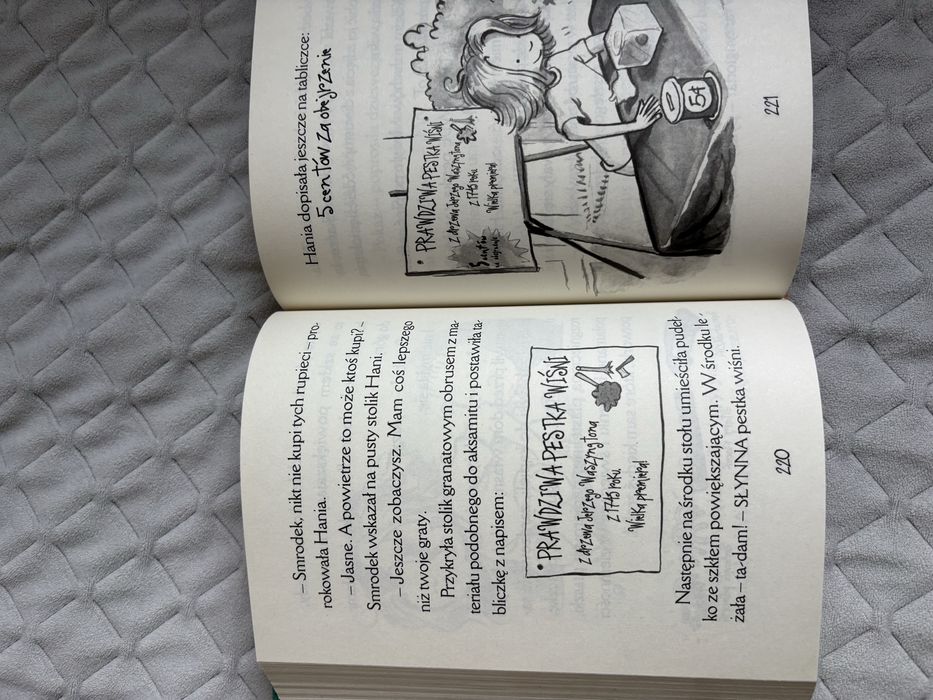 – Smrodek, nikt nie kupi tych rupieci – pro-
rokowała Hania.
– Jasne. A powietrze to może ktoś kupi? –
Smrodek wskazał na pusty stolik Hani.
– Jeszcze zobaczysz. Mam coś lepszego
niż twoje graty.
Przykryła stolik granatowym obrusem z ma-
teriału podobnego do aksamitu i postawiła ta-
bliczkę z napisem:
PRAWDZIWA PESTKA WIŚNI
z drzewa Jerzego Waszyngtona
z 1745 roku
Wielka premiera!
Następnie na środku stołu umieściła pudeł-
ko ze szkłem powiększającym. W środku le-
żała – ta-dam! – SŁYNNA pestka wiśni.
220
Hania dopisała jeszcze na tabliczce:
5 centów za obejrzenie
PRAWDZIWA PESTKA WIŚNI
z drzewa Jerzego Waszyngtona
z 1745 roku
Wielka premiera!
5 centów
za obejrzenie
5¢
221